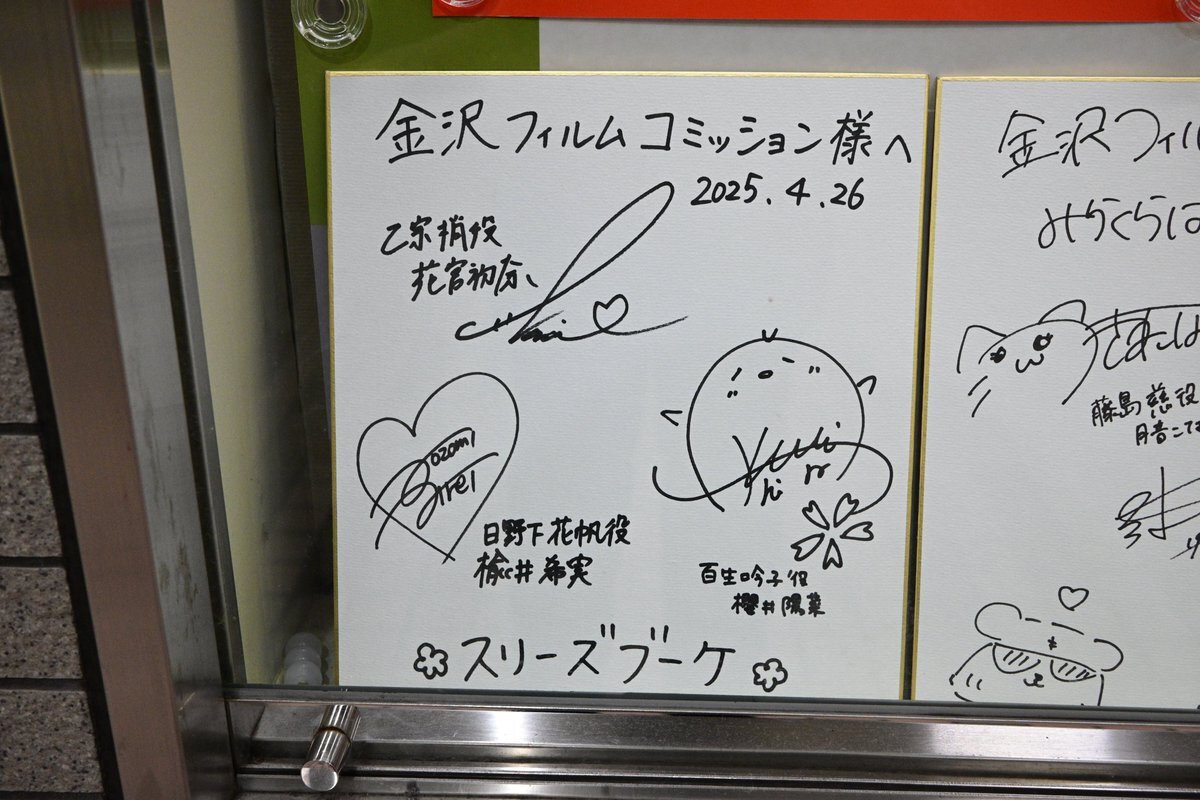 金沢フィルムコミッション様へ
2025.4.26
乙宗梢役
花宮初奈
Nozomi
Nirei
日野下花帆役
楡井希実
百生吟子役
櫻井陽菜
スリーズブーケ
金沢フィル
みらくらぱ
藤島慈役
月音こな